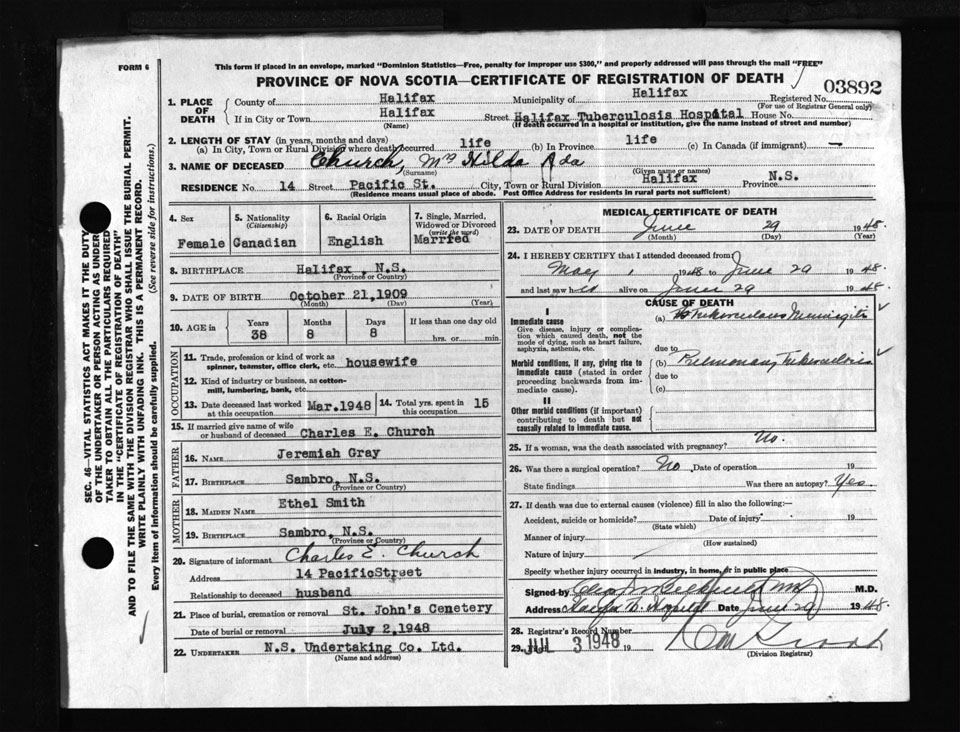 FORM 6
This form if placed in an envelope, marked "Dominion Statistics—Free, penalty for improper use $300," and properly addressed will pass through the mail "FREE"
PROVINCE OF NOVA SCOTIA—CERTIFICATE OF REGISTRATION OF DEATH
03892
1. PLACE OF DEATH
County of Halifax Municipality of Halifax Registered No.
(For use of Registrar General only)
If in City or Town Halifax Street Halifax Tuberculosis Hospital House No.
(Name) (If death occurred in a hospital or institution, give the name instead of street and number)
2. LENGTH OF STAY (in years, months and days)
(a) In City, Town or Rural Division where death occurred life (b) In Province life (c) In Canada (if immigrant) —
3. NAME OF DECEASED Church, Mrs Hilda Ada
(Surname) (Given name or names)
RESIDENCE No. 14 Street Pacific St. City, Town or Rural Division Halifax Province N.S.
(Residence means usual place of abode. Post Office Address for residents in rural parts not sufficient)
4. Sex Female
5. Nationality (Citizenship) Canadian
6. Racial Origin English
7. Single, Married, Widowed or Divorced (write the word) Married
8. BIRTHPLACE Halifax, N.S.
(Province or Country)
9. DATE OF BIRTH October 21,1909
(Month) (Day) (Year)
10. AGE in Years 38 Months 8 Days 8 If less than one day old hrs. or min.
OCCUPATION
11. Trade, profession or kind of work as spinner, teamster, office clerk, etc. housewife
12. Kind of industry or business, as cotton-mill, lumbering, bank, etc.
13. Date deceased last worked at this occupation Mar.1948
14. Total yrs. spent in this occupation 15
15. If married give name of wife or husband of deceased Charles E. Church
FATHER
16. Name Jeremiah Gray
17. Birthplace Sambro, N.S.
(Province or Country)
MOTHER
18. Maiden Name Ethel Smith
19. Birthplace Sambro, N.S.
(Province or Country)
20. Signature of informant Charles E. Church
Address 14 PacificStreet
Relationship to deceased husband
21. Place of burial, cremation or removal St. John's Cenetery
Date of burial or removal July 2,1948
22. UNDERTAKER N.S. Undertaking Co. Ltd.
(Name and address)
MEDICAL CERTIFICATE OF DEATH
23. DATE OF DEATH June 29 1948.
(Month) (Day) (Year)
24. I HEREBY CERTIFY that I attended deceased from:
May 1 1948 to June 29 1948.
and last saw h alive on June 29 1948.
CAUSE OF DEATH
I
Immediate cause
Give disease, injury or complication which caused death, not the mode of dying, such as heart failure, asphyxia, asthenia, etc.
(a) Tuberculous Meningitis
due to
Morbid conditions, if any, giving rise to immediate cause (stated in order proceeding backwards from immediate cause).
(b) Pulmonary Tuberculosis
due to
(c)
II
Other morbid conditions (if important) contributing to death but not causally related to immediate cause.
25. If a woman, was the death associated with pregnancy? No.
26. Was there a surgical operation? No Date of operation 19
State findings Was there an autopsy? Yes
27. If death was due to external causes (violence) fill in also the following:—
Accident, suicide or homicide? Date of injury 19
(State which)
Manner of injury
(How sustained)
Nature of injury
Specify whether injury occurred in industry, in home, or in public place
Signed by M.D.
Address Date June 29 1948.
28. Registrar's Record Number
29. Filed JUL 3 1948 19
(Division Registrar)
SEC. 46—VITAL STATISTICS ACT MAKES IT THE DUTY
OF THE UNDERTAKER OR PERSON ACTING AS UNDER-
TAKER TO OBTAIN ALL THE PARTICULARS REQUIRED
IN THE "CERTIFICATE OF REGISTRATION OF DEATH"
AND TO FILE THE SAME WITH THE DIVISION REGISTRAR WHO SHALL ISSUE THE BURIAL PERMIT.
WRITE PLAINLY WITH UNFADING INK. THIS IS A PERMANENT RECORD.
Every item of information should be carefully supplied. (See reverse side for instructions.)